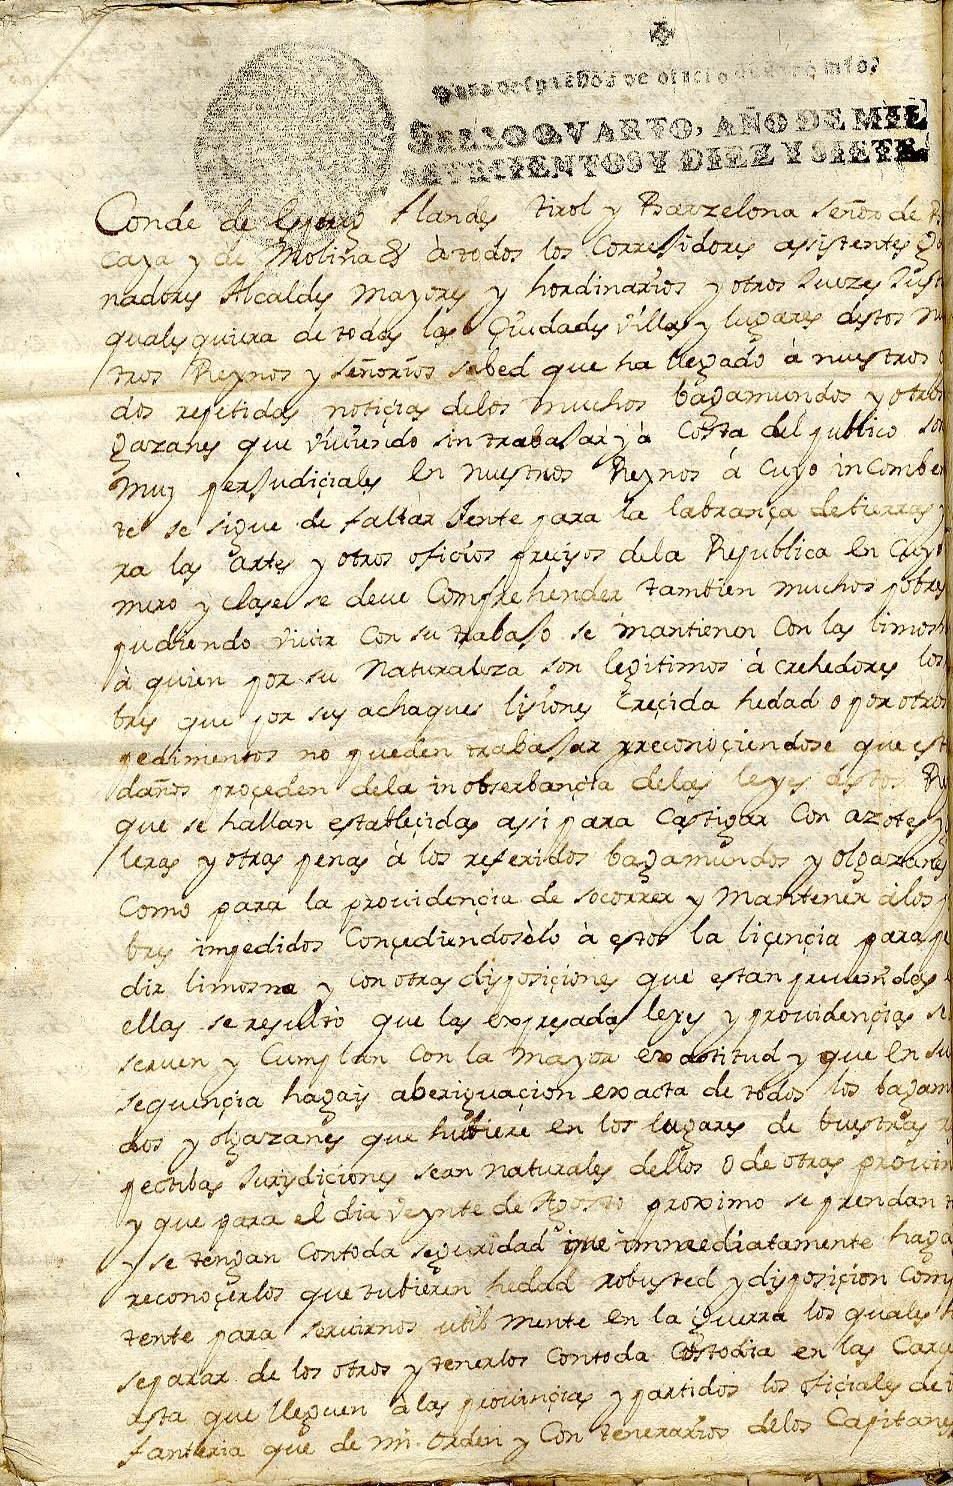 Para despachos de oficio
SELLO QVARTO, AÑO DE MIL
SETECIENTOS Y DIEZ Y SIETE.
Conde de Flandes Tirol y Barzelona señor de
caya y de Molina & à todos los Corresidores assistentes
nadores Alcaldes mayores y hordinarios y otros Juezes
quales quiera de todas las Çiudades villas y lugares destos
tros Reynos y señorios sabed que ha llegado à nuestros
dos repetidas notiçias delos muchos bagamundos y otros
gazanes que viviendo sin trabaJar y à Costa del publico
muy perJudiçiales en nuestros Reynos à cuyo
te se sigue de faltar Jente para la labrança de tierras
ra las artes y otros ofiçios preçisos dela Republica en Cuyo
mero y clase se deve Comprehender tambien muchos pobres
pudiendo vivir Con su trabaJo se mantienen Con las
à quien por su Naturaleza son legitimos à crehedores los
bres que por sus achaques lisiones Creçida hedad o por otros
pedimientos no pueden trabaJar y reconoçiendose que
daños proçeden dela inobserbançia delas leyes destos
que se hallan estableçidas assi para Castigar Con azotes
leras y otras penas à los referidos bagamundos y olgazanes
Como para la providençia de socorrer y Mantener à los
bres impedidos Conçediendo sòlo à estos la liçençia para pe
dir limosna y Con otras disposiçiones que estan prevenidas
ellas se resolvio que las expresadas leyes y providençias se
serven y Cumplan Con la mayor exactitud y que en su
sequençia hagais aberiguaçion exacta de todos los bagamun
dos y olgazanes que hubiere en los lugares de buestras
pectibas Jurisdiçiones sean naturales dellos o de otras provin
y que para el dia veynte de Agosto proximo se prendan
y se tengan Con toda seguridad que immediatamente
reconoçerlos que tubieren hedad robusted y disposiçion Comp
tente para servirnos util mente en la Guerra los quales
separar de los otros y tenerlos Con toda Costodia en las
asta que lleguen à las provinçias y partidos los ofiçiales de
fanteria que de mi orden y Con delos Capitanes